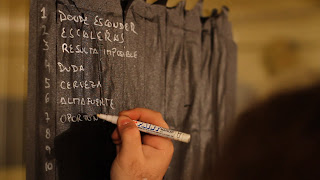 1 DONDE ESCONDER
2 ESCALERAS
3 RESULTA IMPOSIBLE
4 DUDA
5 CERVEZA
6 ALMAFUERTE
7 OPORTUN
8
9
10